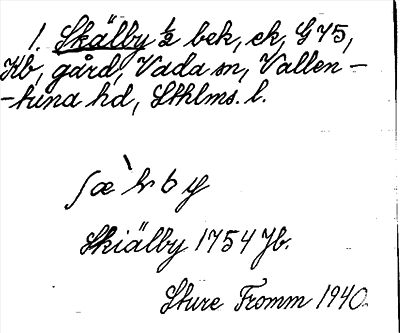 1. Skälby ½ bek, ek, G 75,
Kb, gård, Vada sn, Vallen-
-tuna hd, Sthlms. l.
Skiälby 1754 Jb.
Sture Fromm 1940.